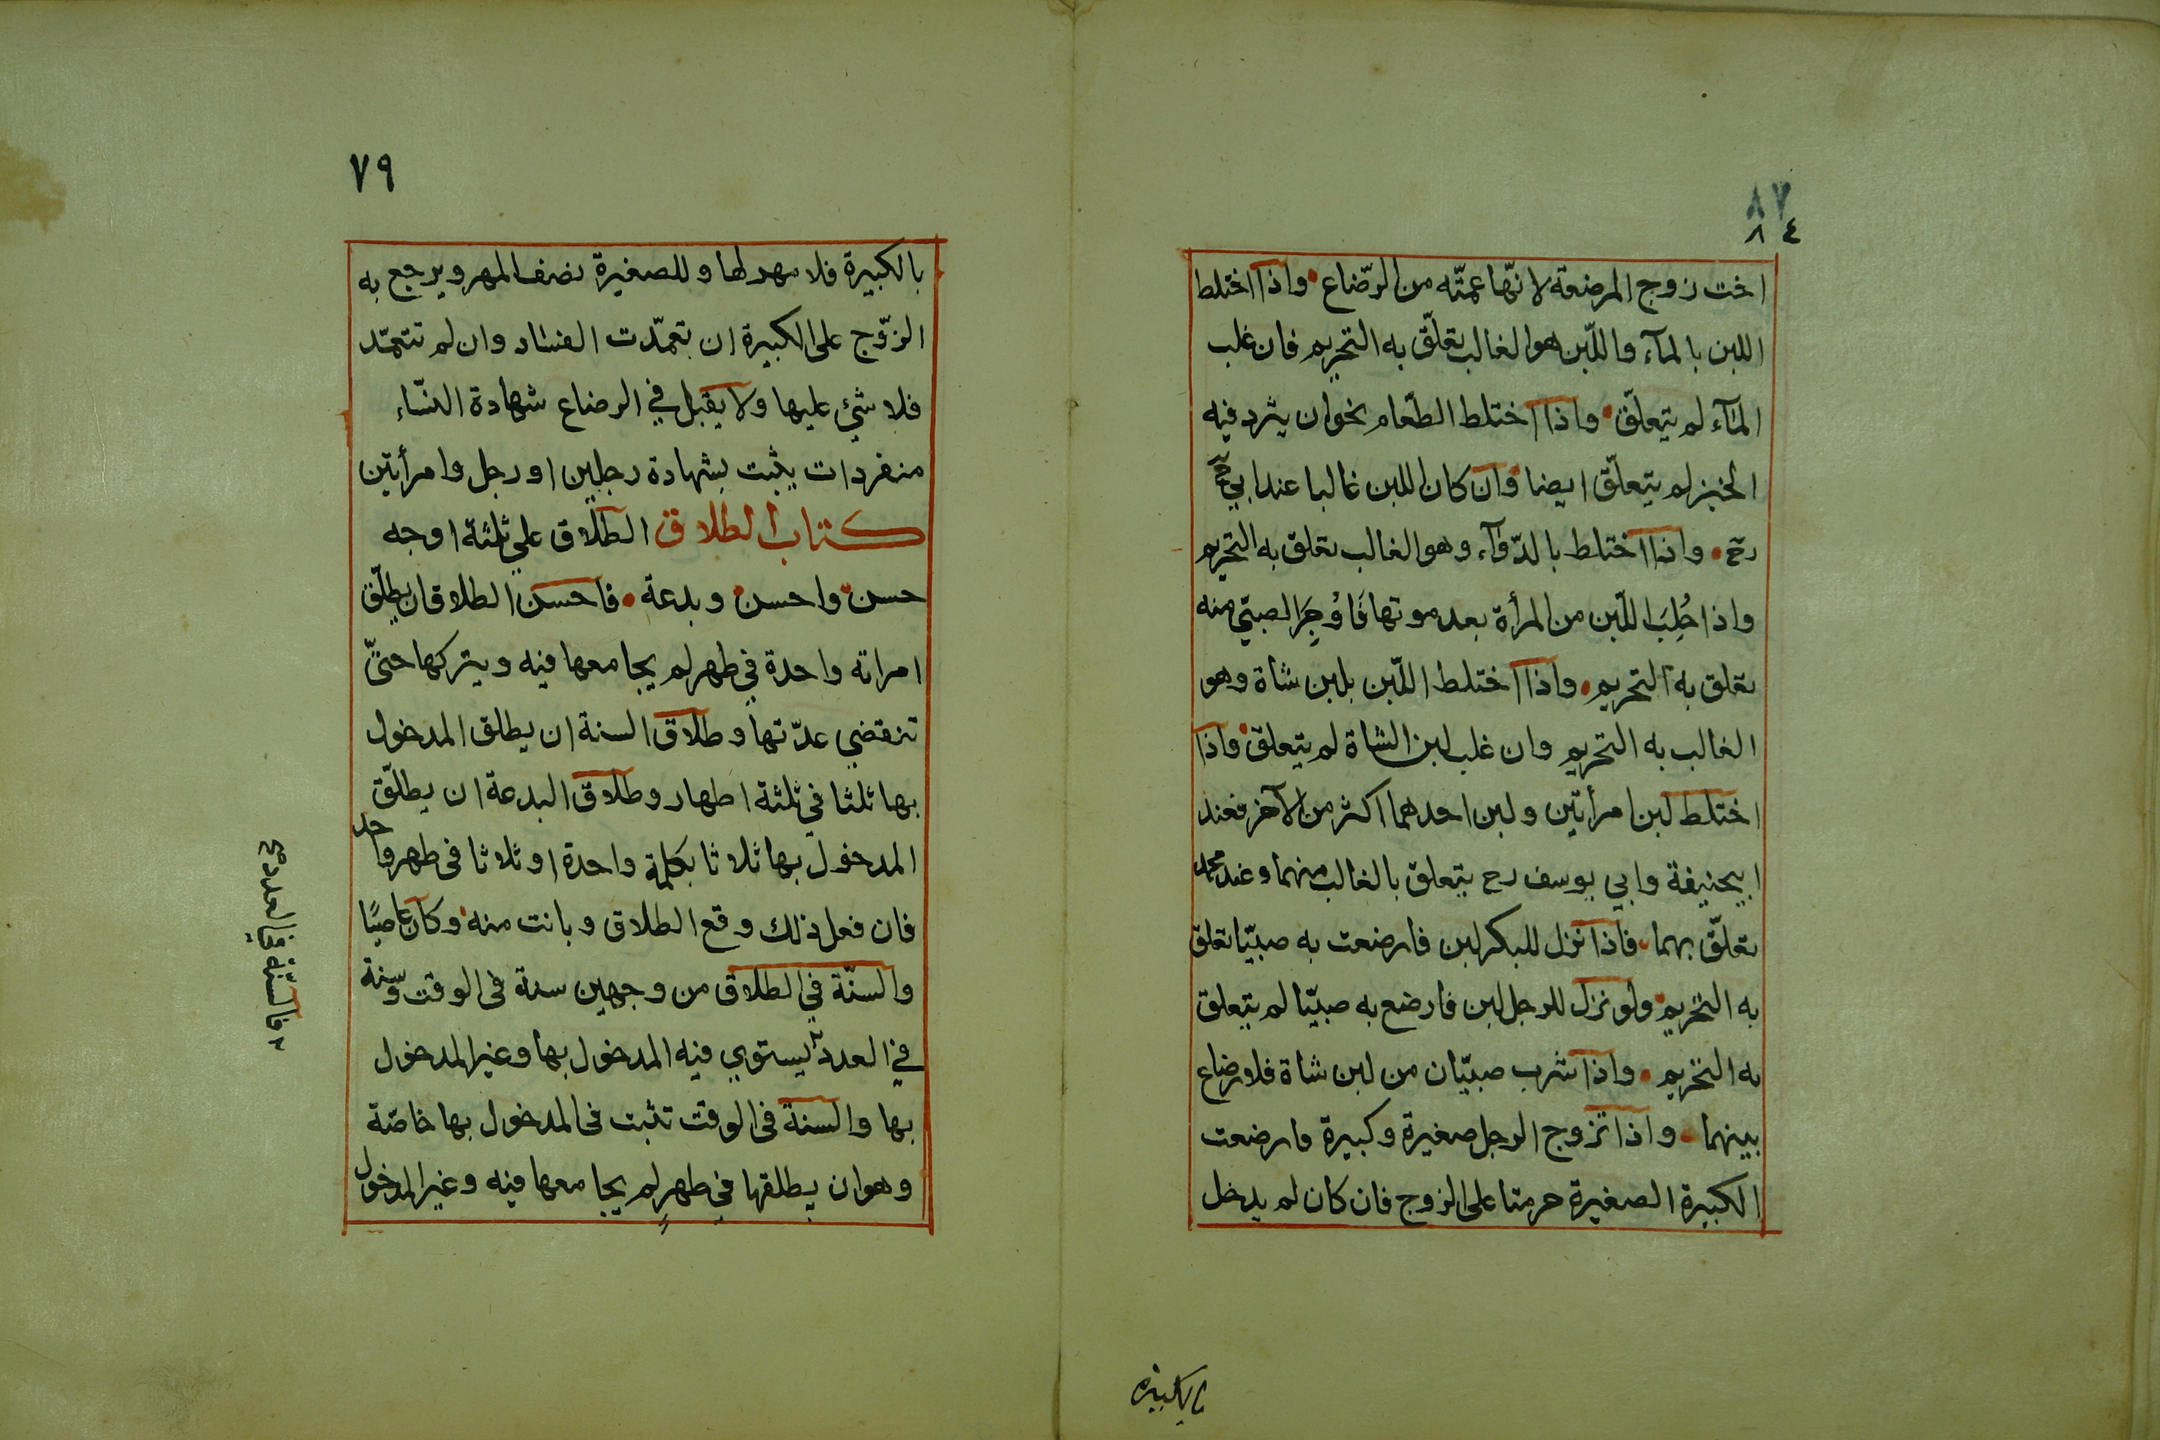 ٨٧
٨٤
اخت زوج المرضعة لانّها عمّته من الرّضاع واذا اختلط
اللبن بالمآء واللّبن هو الغالب تعلّق به التحريم فان غلب
المآء لم يتعلّق واذا اختلط الطّعام نحو ان يثرد فيه
الخبز لم يتعلّق ايضا وان كان اللبن غالبا عند ابي
رح واذا اختلط بالدّوآء وهو الغالب تعلق به التحريم
واذا حُلِبَ اللّبن من المرأة بعد موتها فَاُوْجِرَ الصبيّ منه
تعلق به التحريم واذا اختلط اللّبن بلبن شاة وهو
الغالب به التحريم وان غلب لبن الشاة لم يتعلق واذا
اختلط لبن امرأتين ولبن احدهما اكثر من الآخر فعند
ابيحنيفة وابي يوسف رح يتعلق بالغالب منهما وعند محمد
تعلّق بهما فاذا نزل للبكر لبن فارضعت به صبيّا تعلق
به التحريم ولو نزل للرجل لبن فارضع به صبيّا لم يتعلق
به التحريم واذا شرب صبيّان من لبن شاة فلا رضاع
بينهما واذا تزوج الرجل صغيرة وكبيرة فارضعت
الكبيرة الصغيرة حرمتا على الزوج فان كان لم يدخل
بالكبيرة
٧٩
بالكبيرة فلا مهر لها وللصغيرة نصف المهر ويرجع به
الزّوج على الكبيرة ان تعمّدت الفساد وان لم تتعمّد
فلا شئ عليها ولا يقبل في الرضاع شهادة النّساء
منفردات يثبت بشهادة رجلين او رجل وامرأتين
كتاب الطلاق الطلاق علي ثلثة اوجه
حسن واحسن وبدعة فاحسن الطلاق ان يطلّق
امراته واحدة في طهر لم يجامعها فيه ويتركها حتّى
تنقضي عدّتها وطلاق السنة ان يطلق المدخول
بها ثلثا في ثلثة اطهار وطلاق البدعة ان يطلّق
المدخول بها ثلاثا بكلمة واحدة او ثلاثا في طهر واحد
فان فعل ذلك وقع الطلاق وبانت منه وكان عاصيًا
والسنّة في الطلاق من وجهين سنة في الوقت وسنة
في العدد يستوي فيه المدخول بها وغير المدخول
بها والسنة في الوقت تثبت في المدخول بها خاصّة
وهو ان يطلقها في طهرٍ لم يجامعها فيه وغير المدخول
فالسّنة في العدد صح